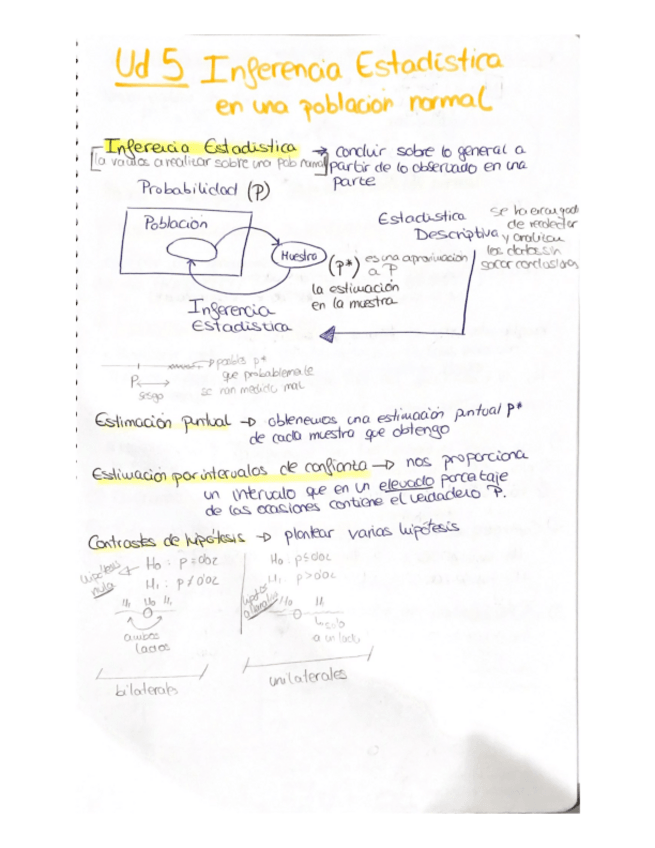 Ud 5 Inferencia Estadística
en una población normal
Inferencia Estadística → concluir sobre lo general a
[la vamos a realizar sobre una pob normal] partir de lo observado en una
parte
Probabilidad (P)
Población
Muestra
(P*) es una aproximación
a P
la estimación
en la muestra
Inferencia
Estadística
Estadística
Descriptiva
se ha encargado
de recolectar
y analizar
los datos sin
sacar conclusiones
→ posible p*
que probablemente
se han medido mal
P
sesgo
Estimación puntual → obtenemos una estimación puntual P*
de cada muestra que obtengo
Estimación por intervalos de confianza → nos proporciona
un intervalo que en un elevado porcetaje
de las ocasiones contiene el verdadero P.
Contrastes de hipótesis → plantear varias hipótesis
hipótesis
nula
H0 : P = 0'02
H1 : P ≠ 0'02
H1 H0 H1
ambos
lados
bilaterales
H0 : P ≤ 0'02
H1 P > 0'02
H0 H1
solo
a un lado
unilaterales